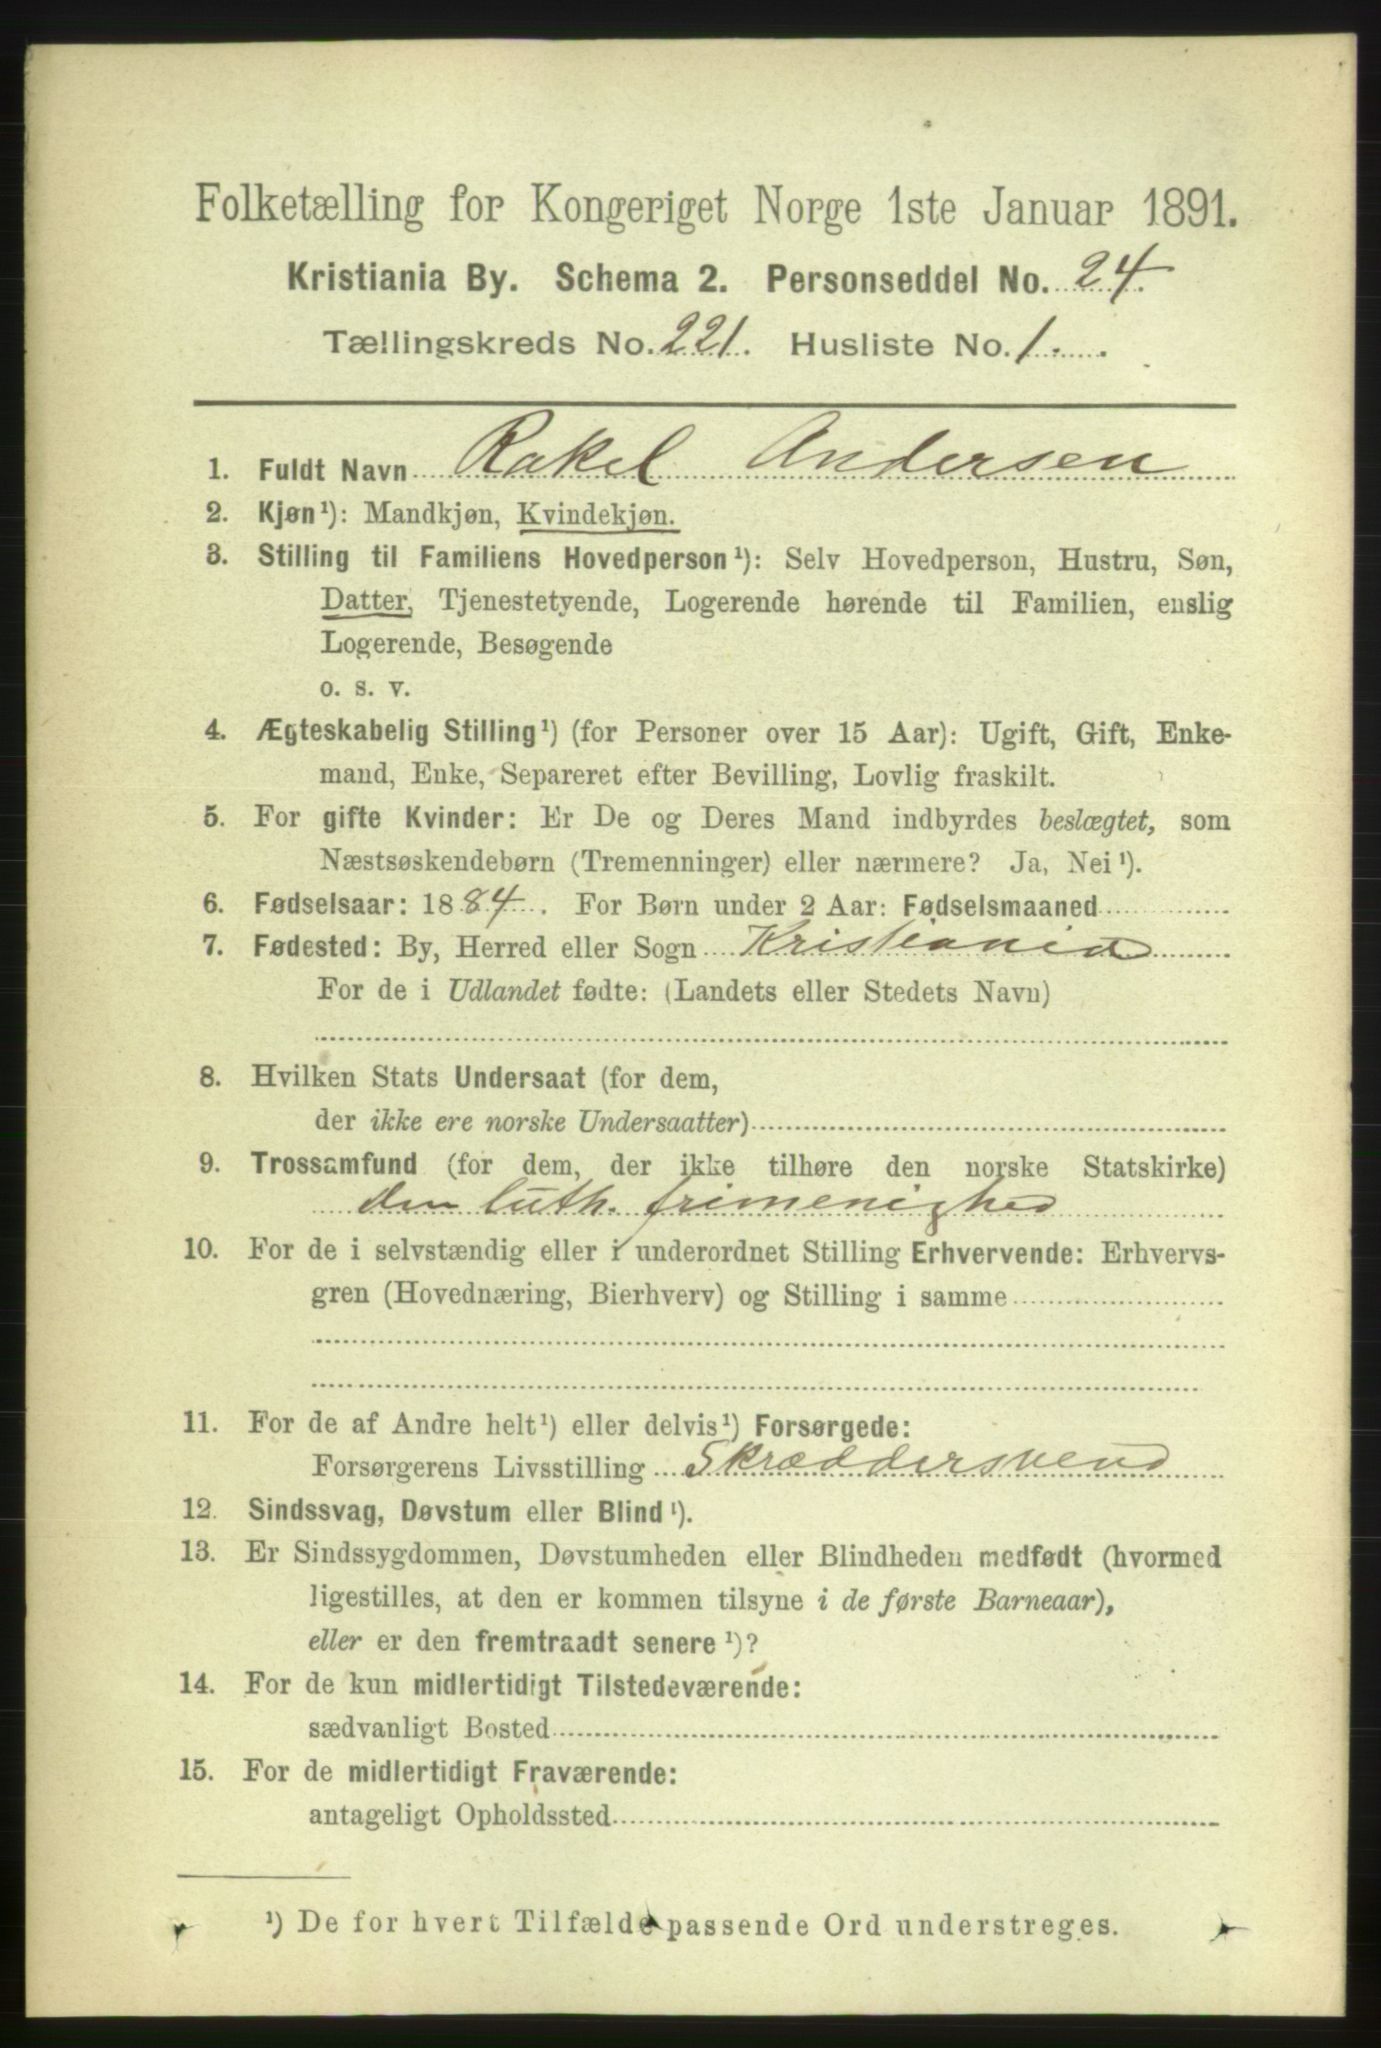 Folketælling for Kongeriget Norge 1ste Januar 1891.
Kristiania By. Schema 2. Personseddel No. 24.
Tællingskreds No. 221. Husliste No. 1.
1. Fuldt Navn Rakel Andersen
2. Kjøn¹): Mandkjøn, Kvindekjøn.
3. Stilling til Familiens Hovedperson¹): Selv Hovedperson, Hustru, Søn,
Datter, Tjenestetyende, Logerende hørende til Familien, enslig
Logerende, Besøgende
o. s. v.
4. Ægteskabelig Stilling¹) (for Personer over 15 Aar): Ugift, Gift, Enke-
mand, Enke, Separeret efter Bevilling, Lovlig fraskilt.
5. For gifte Kvinder: Er De og Deres Mand indbyrdes beslægtet, som
Næstsøskendebørn (Tremenninger) eller nærmere? Ja, Nei¹).
6. Fødselsaar: 1884. For Børn under 2 Aar: Fødselsmaaned
7. Fødested: By, Herred eller Sogn Kristiania
For de i Udlandet fødte: (Landets eller Stedets Navn)
8. Hvilken Stats Undersaat (for dem,
der ikke ere norske Undersaatter)
9. Trossamfund (for dem, der ikke tilhøre den norske Statskirke)
den luth. frimenighed
10. For de i selvstændig eller i underordnet Stilling Erhvervende: Erhvervs-
gren (Hovednæring, Bierhverv) og Stilling i samme
11. For de af Andre helt¹) eller delvis¹) Forsørgede:
Forsørgerens Livsstilling Skræddersvend
12. Sindssvag, Døvstum eller Blind¹).
13. Er Sindssygdommen, Døvstumheden eller Blindheden medfødt (hvormed
ligestilles, at den er kommen tilsyne i de første Barneaar),
eller er den fremtraadt senere¹)?
14. For de kun midlertidigt Tilstedeværende:
sædvanligt Bosted
15. For de midlertidigt Fraværende:
antageligt Opholdssted
¹) De for hvert Tilfælde passende Ord understreges.